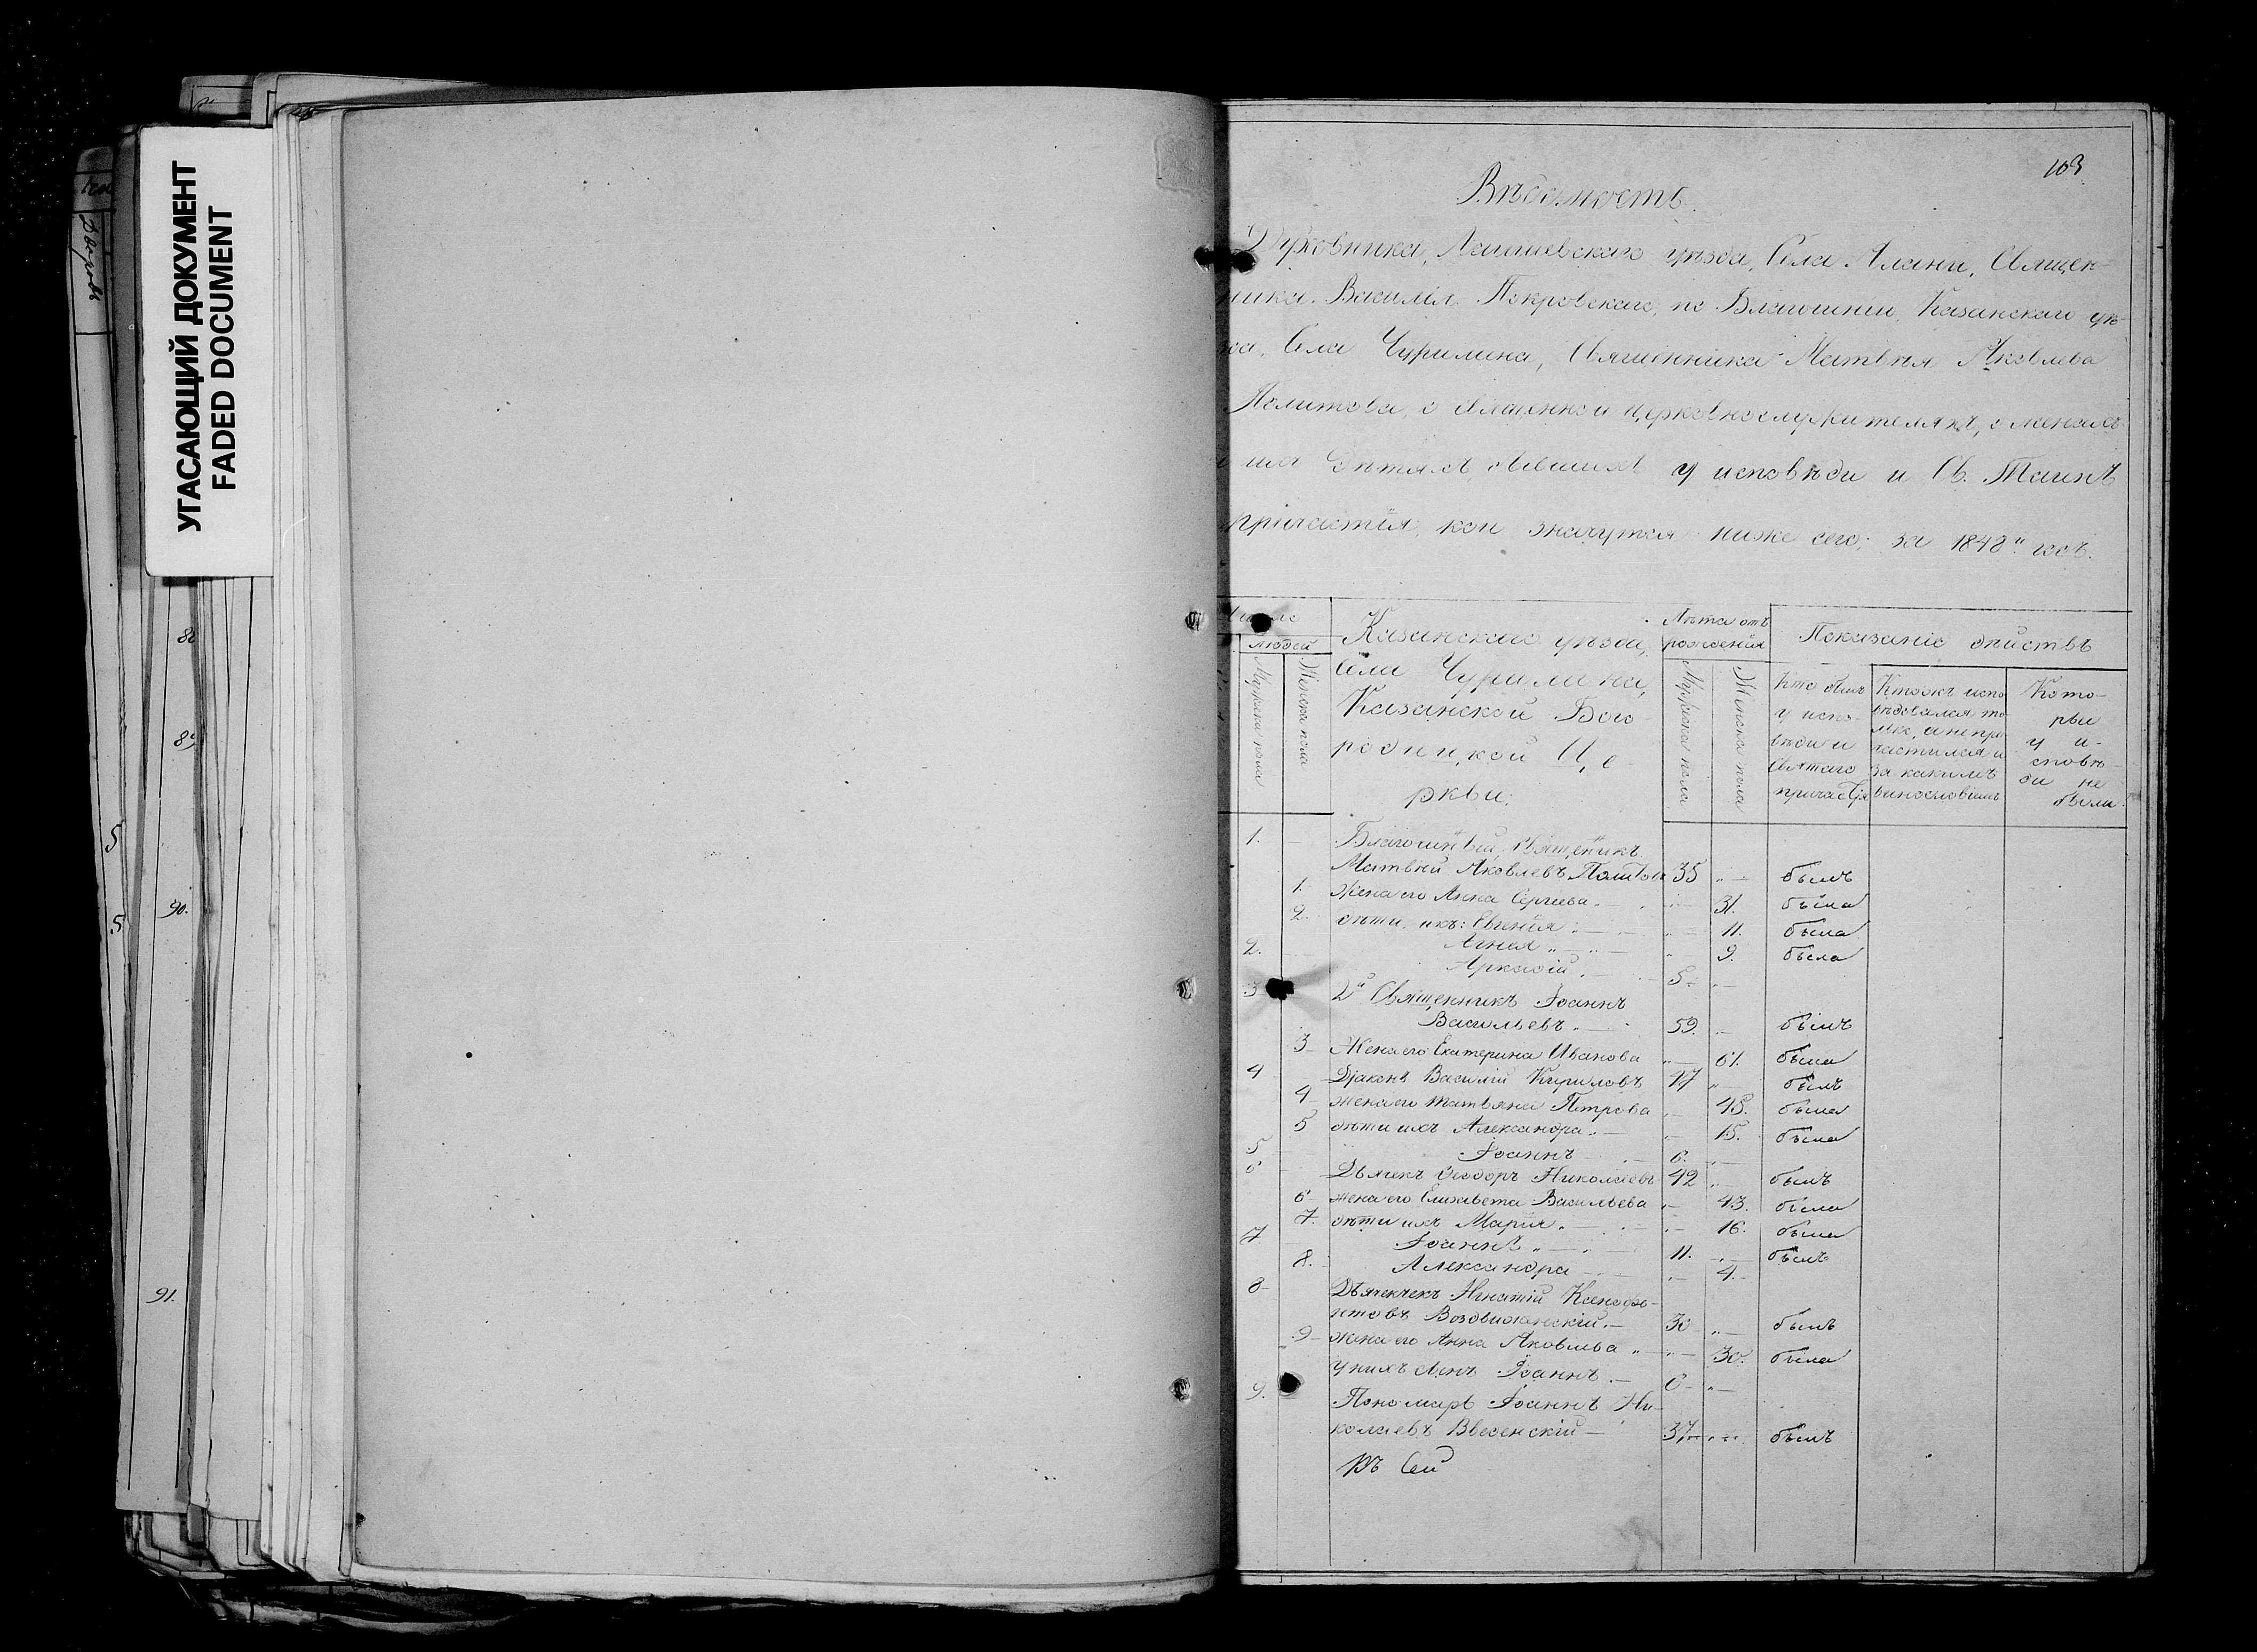 УГАСАЮЩИЙ ДОКУМЕНТ
FADED DOCUMENT
86
89
5
90.
5
91.
103
Вѣдомость.
Духовника, Лаишевскаго уѣзда, Села Алани, Священ-
ника Василія Покровскаго, по Благочинію, Казанскаго уѣ-
Села Чурилина, Священника Матвѣя Яковлева
Политова, о священно и церковнослужителяхъ, с женамъ
дѣтямъ, бывшихъ у исповѣди и Св. Таинъ
причастія, кои значутся ниже сего; за 1848й годъ.
Число
людей
Мужеска пола
Женска пола
Казанскаго уѣзда,
Села Чурилина,
Казанской Бого-
родицкой Це-
ркви;
Лѣта отъ
рожденія
Мужеска пола
Женска пола
Показаніе дѣйствъ
Кто былъ
у испо-
вѣди и
Святаго
причастія
Кто же испо
вѣдовался то-
мко, а не при
частился и
за какимъ
винословіемъ
Кото-
рыи
у и-
сповѣ-
ди не
были.
1. Благочинный Священникъ
Матвѣй Яковлевъ Политовъ 35 „ былъ
1. Жена его Анна Сергѣева. 31. была
2. дѣти ихъ: Евгенія „ 11. была
Агнія „ 9. была
2. Аркадій . 5 „
3 2й Священникъ Іоаннъ
Васильевъ „ 59. „ былъ
3 Жена его Екатерина Иванова „ 61. была
4 Діаконъ Василій Кириловъ 47 „ былъ
4 жена его Татьяна Петрова „ 45. была
5 дѣти ихъ Александра „ 15. была
5 Іоаннъ 6. „
6 Дьячекъ Ѳеодоръ Николаевъ 42 „ былъ
6 жена его Елизавета Васильева „ 43. была
7. дѣти ихъ Марія „ 16. была
7 Іоаннъ „ 11. „ былъ
8. Александра „ 4.
8 Дьячекъ Игнатій Ксенофо-
нтовъ Воздвиженскій 30 „ былъ
9 жена его Анна Яковлева „ 30. была
у нихъ сынъ Іоаннъ 6 „
9. Пономарь Іоаннъ Ни-
колаевъ Введенскій 37 „ былъ
Къ Сей